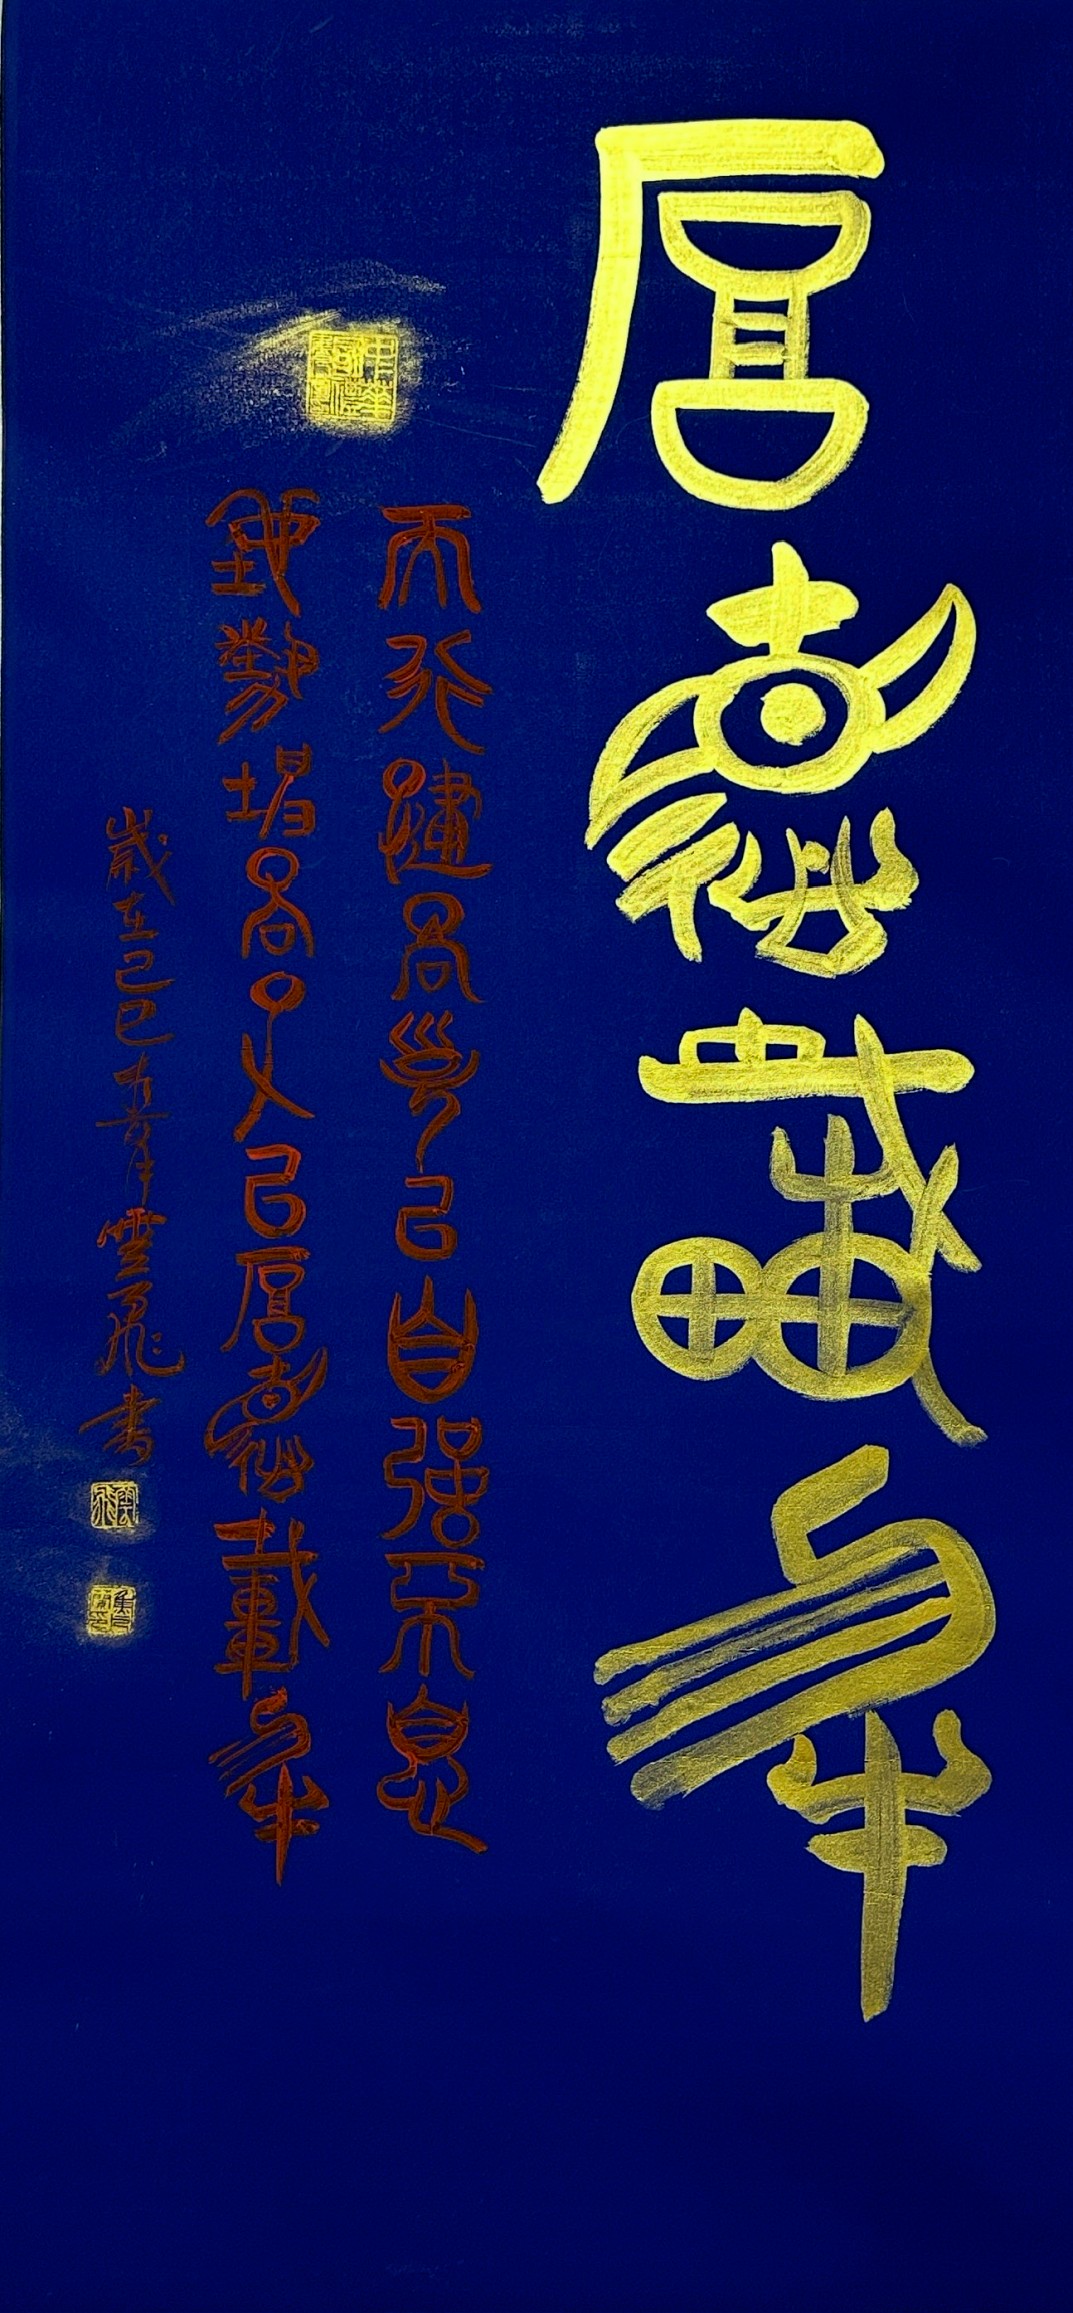 厚德載物
天行健君子以自强不息
地勢坤君子以厚德載物
歲在 雲飛書